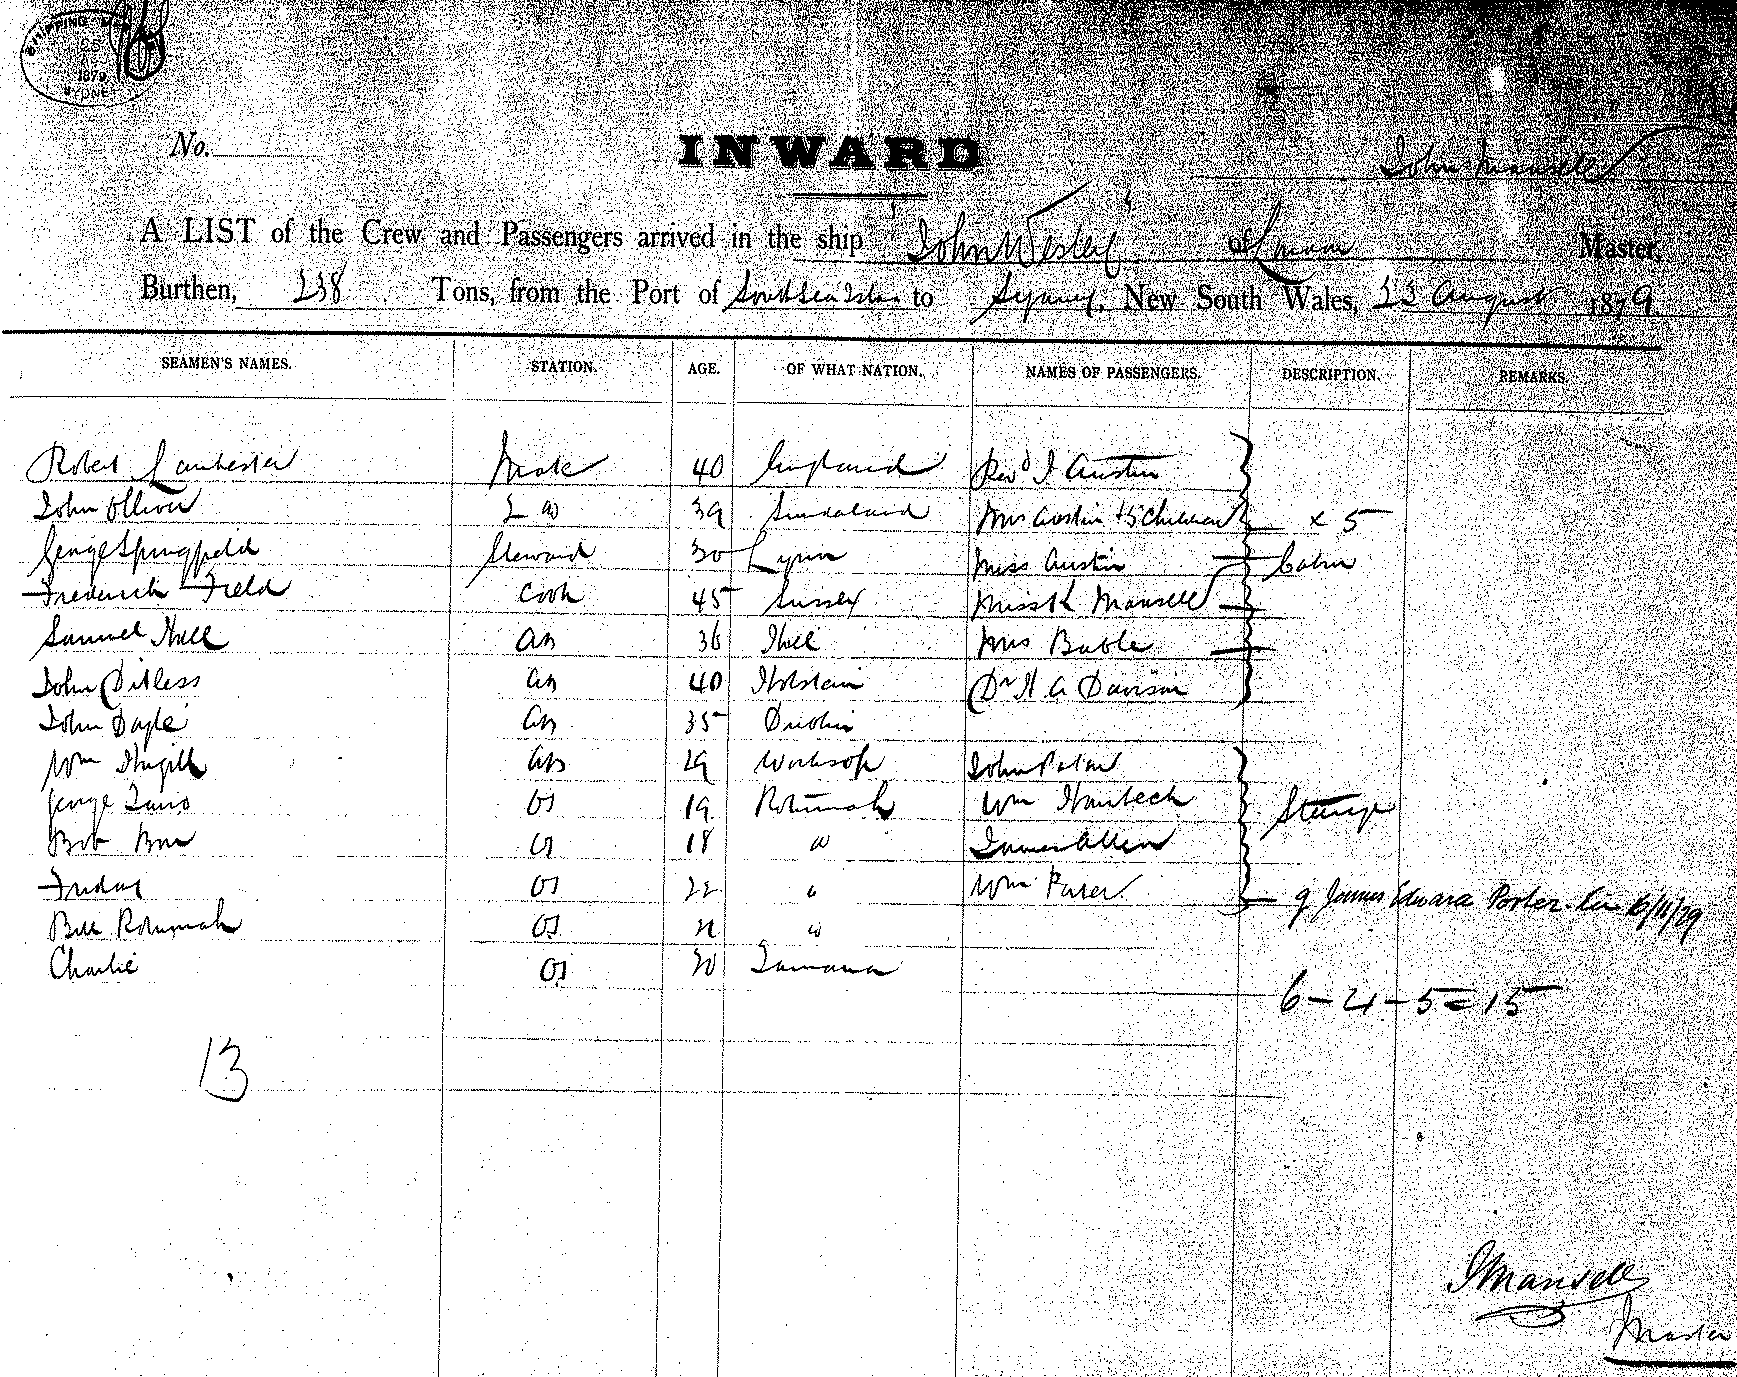 SHIPPING
1879
SYDNEY
No.
INWARD
John Mansell
A LIST of the Crew and Passengers arrived in the ship "John Wesley" of London Master,
Burthen, 238 Tons, from the Port of South Sea Islds to Sydney, New South Wales, 23 August 1879.
SEAMEN'S NAMES. STATION. AGE. OF WHAT NATION. NAMES OF PASSENGERS. DESCRIPTION. REMARKS.
Robert Lanchester Mate 40 England Revd J Austin
John Olliver 2 " 39 Sunderland Mrs Austin + 5 Children x 5
George Springfield Steward 30 Lynn Miss Austin Cabin
Frederick Field Cook 45 Sussex Miss K Mansell
Samuel Hull AB 36 Hull Mrs Bable
John Ditless AB 40 Holstein Dr H A Davison
John Doyle AB 35 Dublin
Wm Hugill AB 29 Worksop John
George OS 19 Rotumah Wm Steerage
Bob OS 18 " James Allen
Friday OS 22 " Wm
Bill Rotumah OS " James Edward Porter 6/11/79
Charlie OS 20
6-4-5=15
13
J Mansell
Master